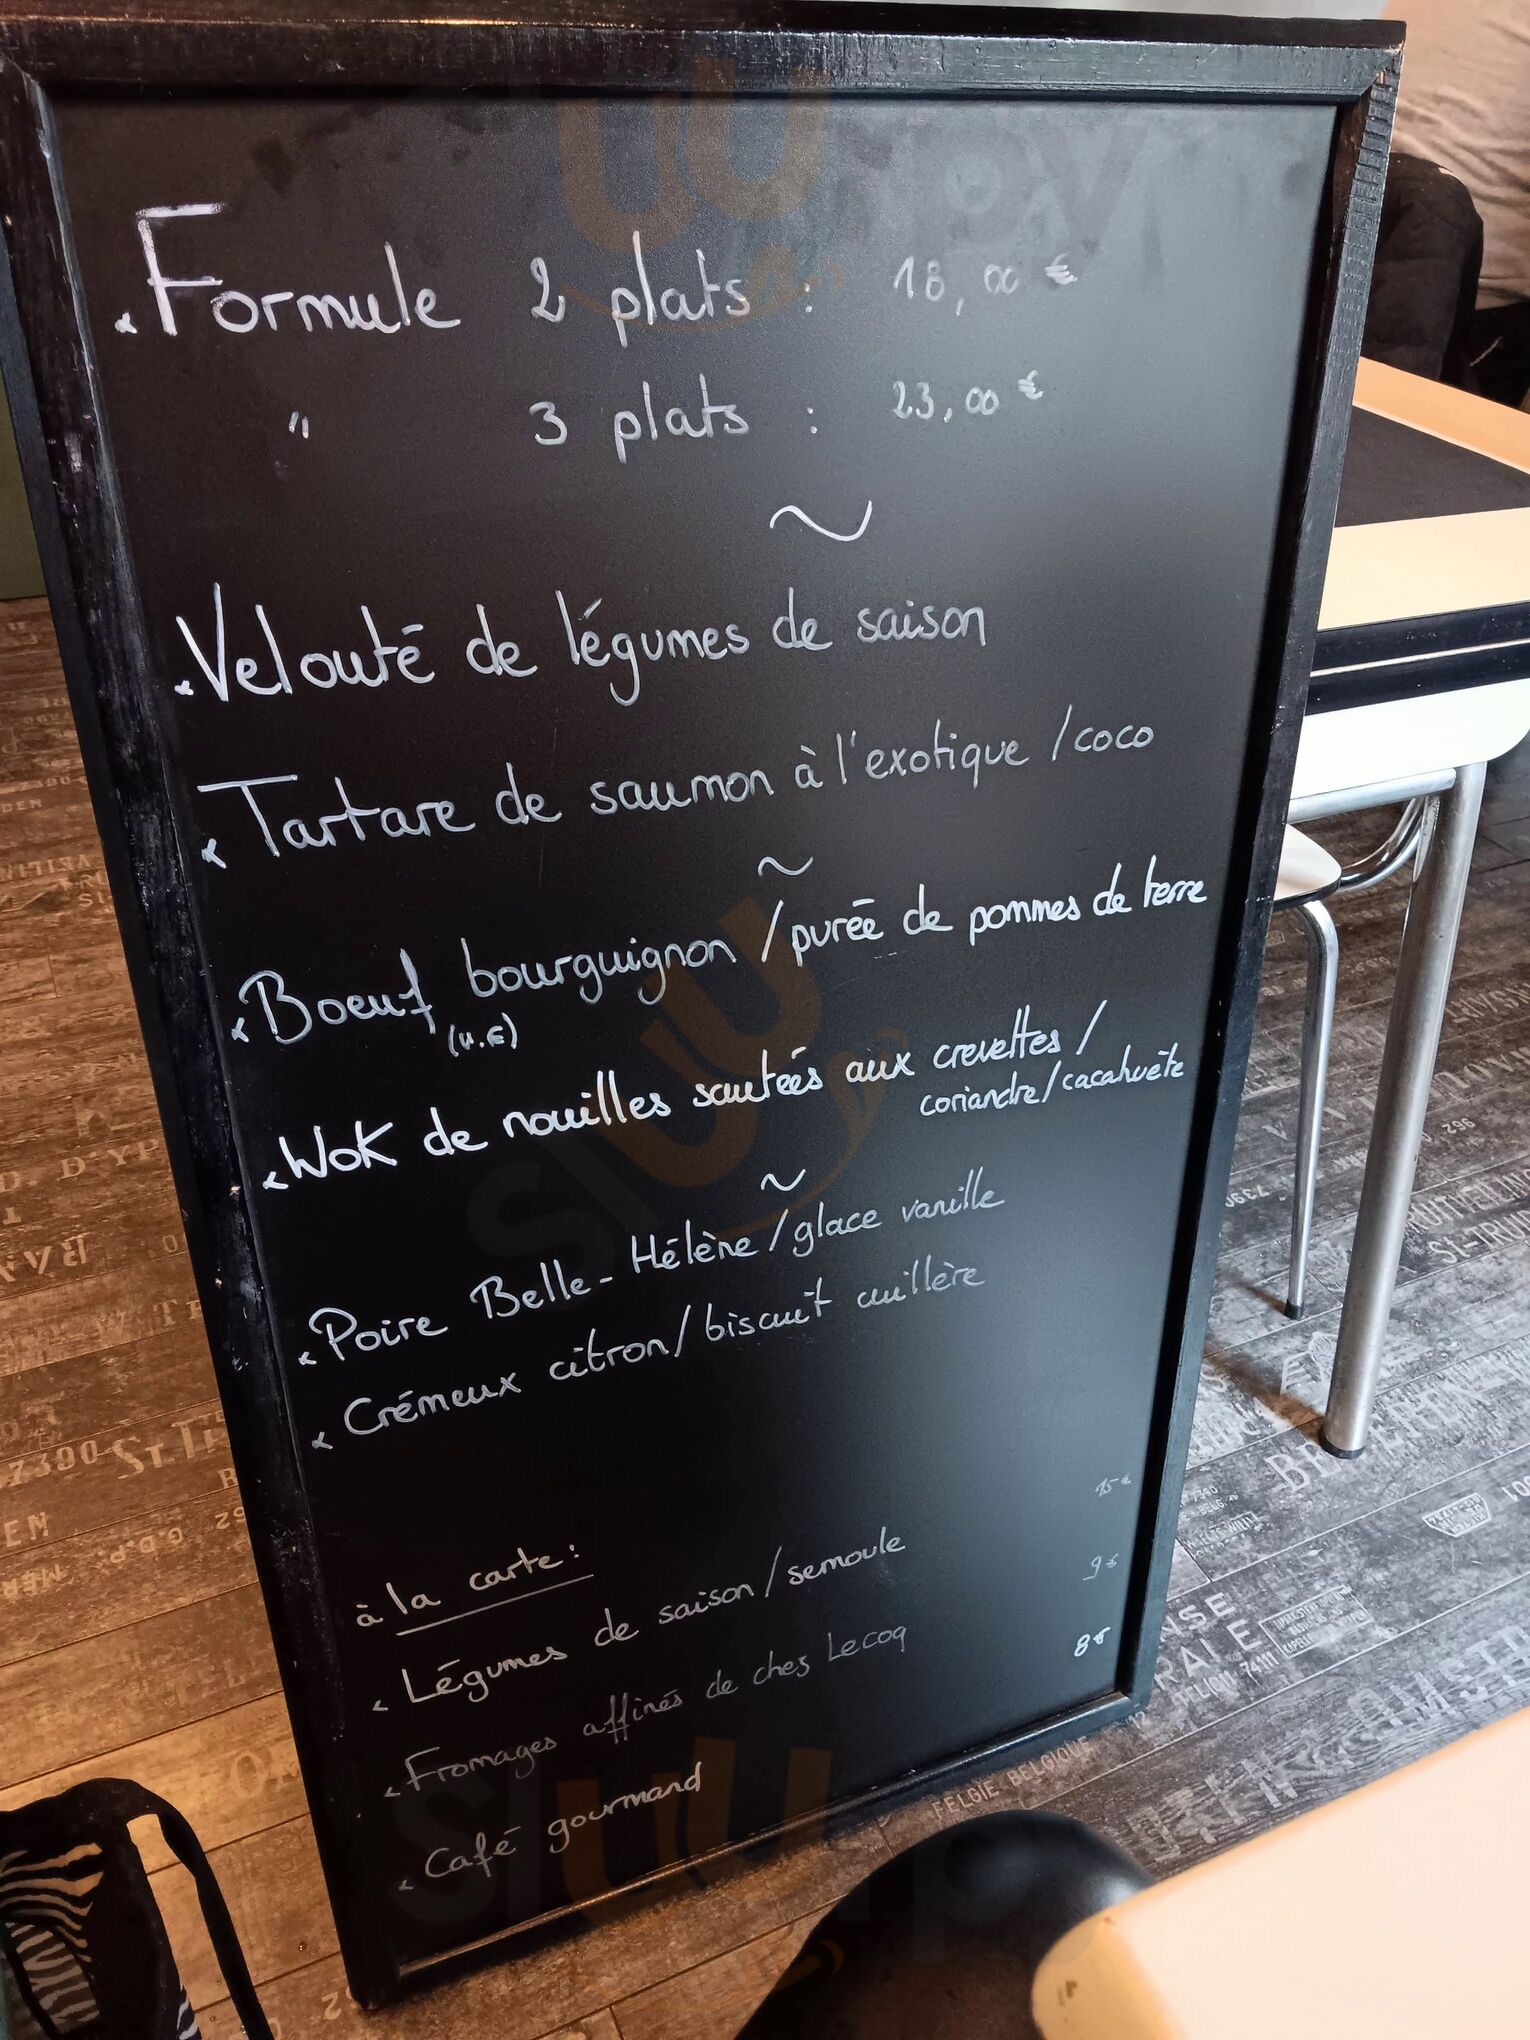 Formule 2 plats : 18,00 €
" 3 plats : 23,00 €
~
Velouté de légumes de saison
Tartare de saumon à l'exotique / coco
~
Boeuf bourguignon / purée de pommes de terre
(U.E)
Wok de nouilles sautées aux crevettes /
coriandre / cacahuète
~
Poire Belle-Hélène / glace vanille
Crémeux citron / biscuit cuillère
à la carte :
Légumes de saison / semoule 15€
Fromages affinés de chez Lecoq 9€
Café gourmand 8€